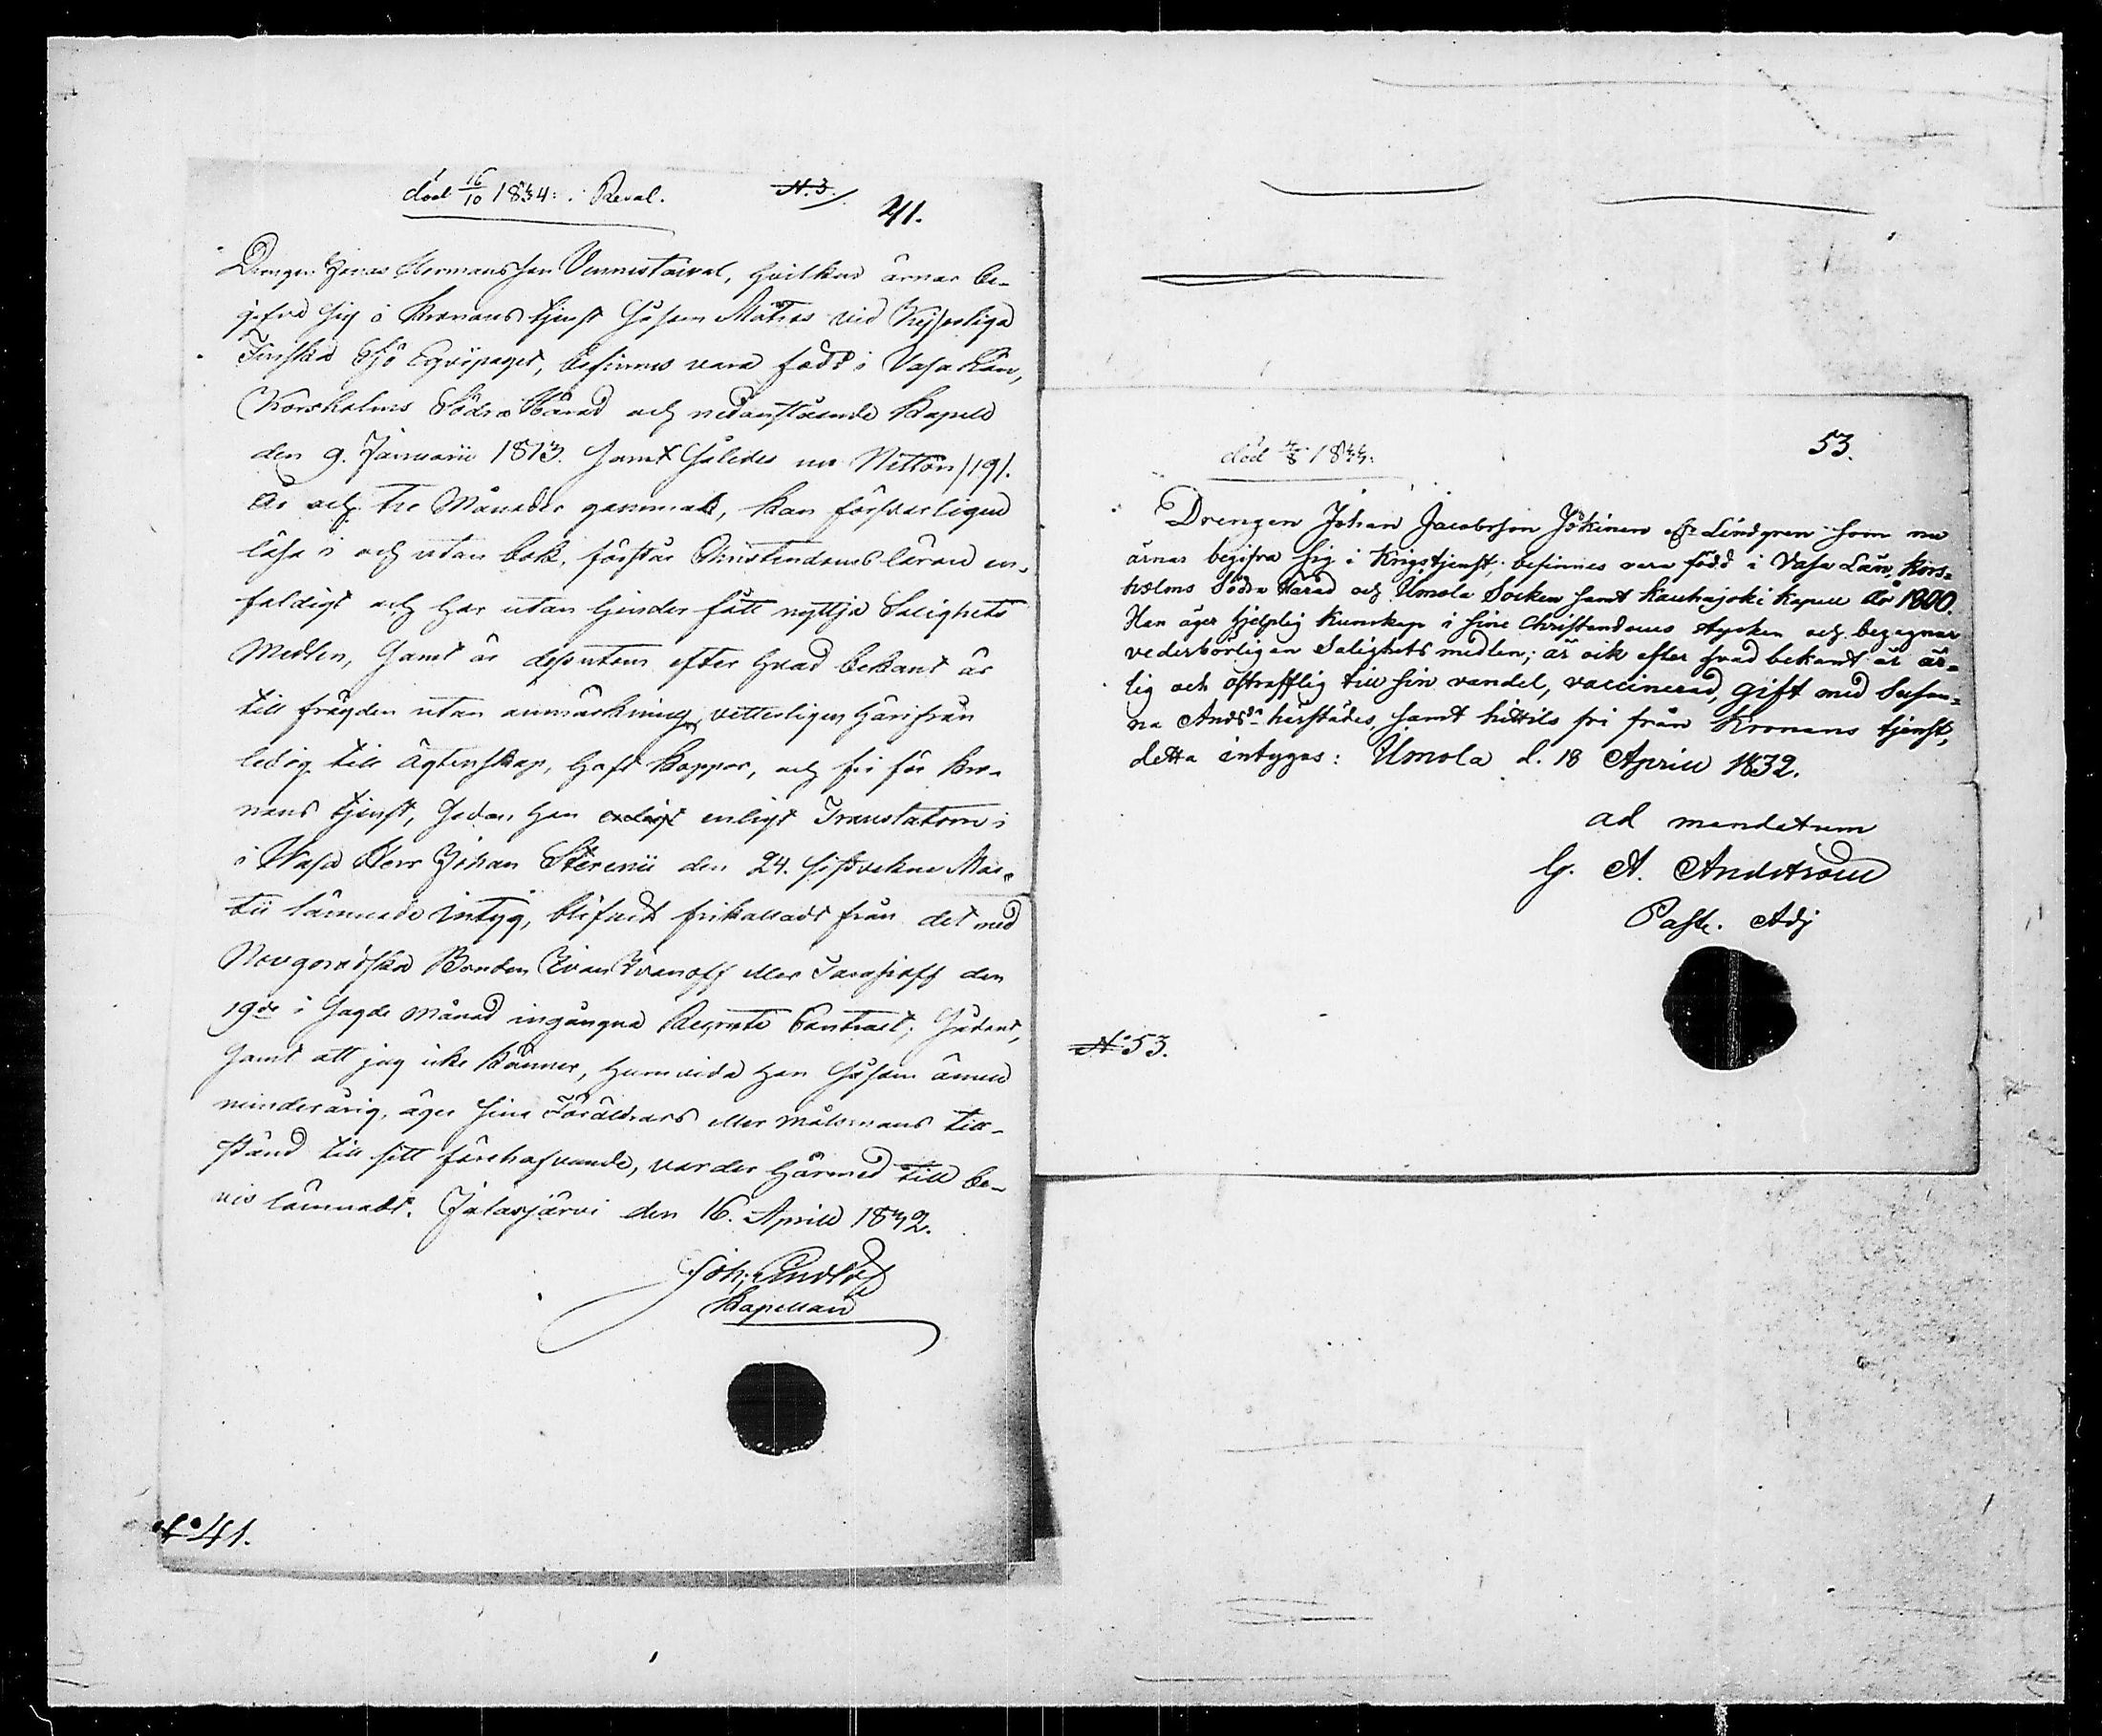 död 16/10 1834: i Reval.
N. 3.
41.
Drengen Jonas Hermansson Vennistaival, hvilken ärnar be-
gifva sig i Kronans tjenst såsom Matros vid Kejserliga
Finska Sjö Equipaget, befinnes vara född i Vasa Län,
Korsholms Södra Härad och nedanstående Kapell
den 9. Januarii 1813. samt således nu Nitton /19/.
år och tre Månader gammal, kan försvarligen
läsa i och utan bok, förstår Christendoms läran en-
faldigt och har utan hinder fått nyttja Salighets
Medlen, samt är dessutom efter hvad bekant är
till frägden utan anmärkning, vetterligen härifrån
ledig till ägtenskap, haft koppor, och fri för Kro-
nans tjenst, sedan han enligt enligt Translatorn i
i Wasa Herr Johan Sterenii den 24. sistvekne Mar-
tii lämnade intyg, blifvit frikallad från det med
Novgorodska Bonden Ivan Ivanoff eller Tarasioff den
19de i sagde månad ingångna Recryte Contract; Sådant,
samt att jag icke känner, huruvida han såsom ännu
minderårig, äger sina Föräldrars eller målsmans till-
stånd till sitt förehafvande, varder härmed till be-
vis lämnadt. Jalasjärvi den 16. Aprill 1832.
Joh:
Kapellan
No 41.
död 4/8 1833:
53.
Drengen Johan Jacobsson Jokinen eller Lindgren som nu
ärnar begifva sig i Krigstjenst, befinnes vara född i Vasa Län, Kors-
holms Södra Härad och Ilmola Socken samt Kauhajoki Kapell år 1800.
Han äger hjelplig kunskap i sine Christendoms stycken och begagnar
vederbörligen Salighets medlen; är ock efter hvad bekant är är-
lig och ostrafflig till sin vandel, vaccinerad, gift med Susan-
na Andsdr härstädes, samt hittils fri från Kronans tjenst,
detta intygas: Ilmola d. 18 Aprill 1832.
ad mandatum
G. A. Andström
Past. Adj
No 53.